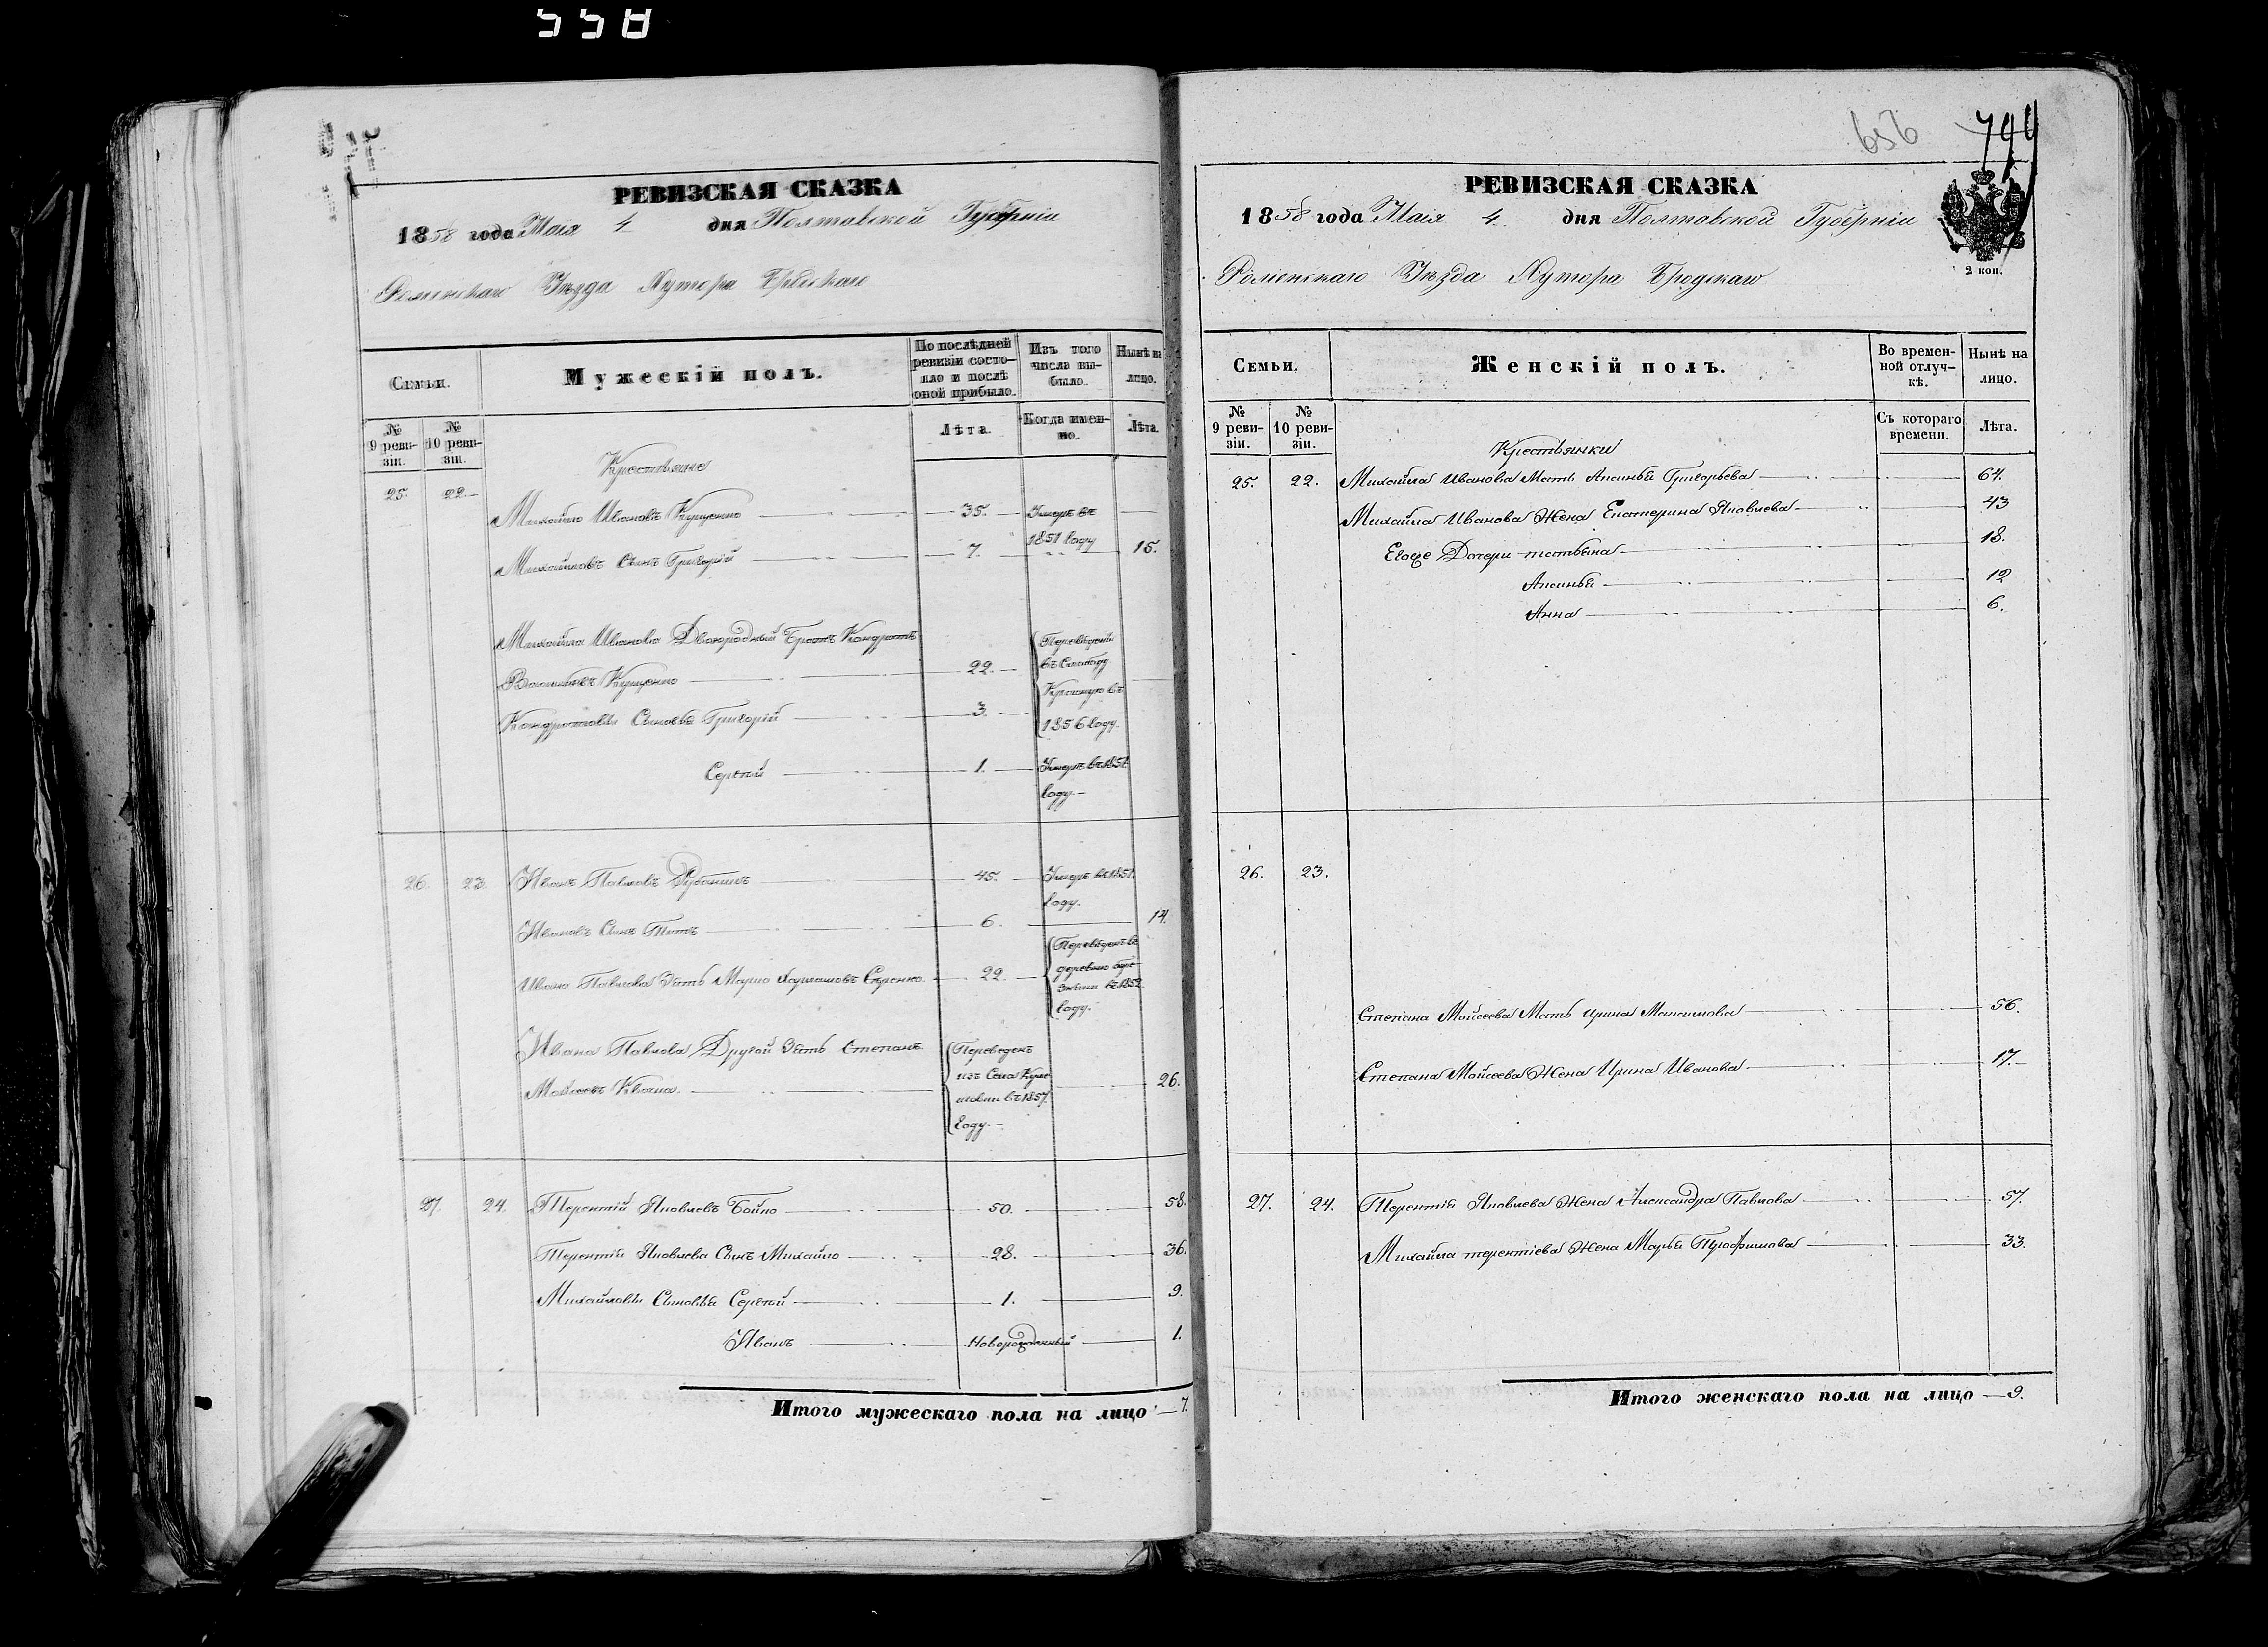 558
РЕВИЗСКАЯ СКАЗКА
1858 года Маія 4 дня Полтавской Губерніи
Роменскаго Уѣзда Хутора Бродскаго
Семьи.
Мужескій полъ.
По послѣдней ревизіи состо-
яло и послѣ оной прибыло.
Изъ того числа вы-
было.
Нынѣ на лицо.
№ 9 реви-
зіи.
№ 10 реви-
зіи.
Лѣта.
Когда имен-
но.
Лѣта.
Крестьяне
25. 22. Михайло Ивановъ Кущенко 35. Умеръ въ
1851 году
Михайловъ Сынъ Григорій 7. 15.
Михайла Иванова Двоюродный Братъ Кондратъ
Васильевъ Кущенко 22. Переведены
въ Слободу
Кондратовы Сыновья Григорій 3. Красную въ
1856 году.
Сергѣй 1. Умеръ въ 1851
году.
26. 23. Иванъ Павловъ Рубанъ 45. Умеръ въ 1851
году.
Ивановъ Сынъ Титъ 6. 14.
Ивана Павлова Зять Марко 22. Переведенъ въ
деревню
въ 1852
году.
Ивана Павлова Другой Зять Степанъ
Моисеевъ Квоша. Переведенъ
изъ Села
въ 1857
году. 26.
27. 24. Терентій Яковлевъ Бойко 50. 58.
Терентія Яковлева Сынъ Михайло 28. 36.
Михайловы Сыновья Сергѣй 1. 9.
Иванъ Новорожденный 1.
Итого мужескаго пола на лицо 7.
656
744
РЕВИЗСКАЯ СКАЗКА
1858 года Маія 4. дня Полтавской Губерніи
2 коп.
Роменскаго Уѣзда Хутора Бродскаго
Семьи.
Женскій полъ.
Во времен-
ной отлуч-
кѣ.
Нынѣ на лицо.
№ 9 реви-
зіи.
№ 10 реви-
зіи.
Съ котораго времени.
Лѣта.
Крестьянки
25. 22. Михайла Иванова Мать Аксинья Григорьева 64.
Михайла Иванова Жена Екатерина Яковлева 43
Егоже Дочери Татьяна 18.
Аксинья 12
Анна 6.
26. 23.
Степана Мойсеева Мать Ирина Максимова 56.
Степана Мойсеева Жена Ирина Иванова 17.
27. 24. Терентія Яковлева Жена Александра Павлова 57.
Михайла терентіева Жена Марья Трофимова 33.
Итого женскаго пола на лицо 9.